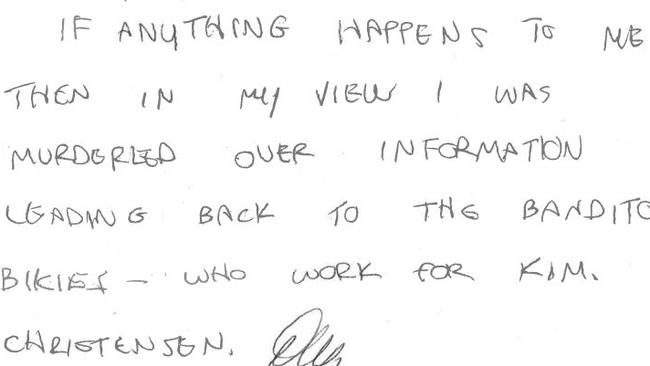 IF ANYTHING HAPPENS TO ME
THEN IN MY VIEW I WAS
MURDERED OVER INFORMATION
LEADING BACK TO THE BANDITO
BIKIES – WHO WORK FOR KIM.
CHRISTENSEN.